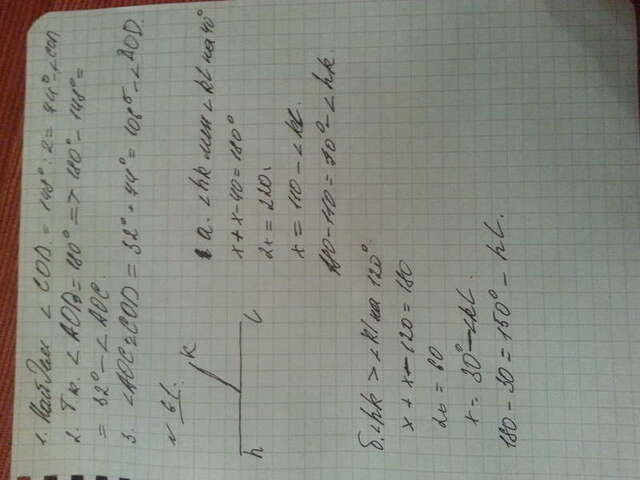 1. Найдем ∠ COD = 148° : 2 = 74° - ∠ COD
2. Т.к. ∠ AOD = 180° => 180° - 148° =
= 32° - ∠ AOC
3. ∠AOC + COD = 32° + 74° = 106° - ∠ AOD.
N 61.
h k l
а. ∠hk мен ∠ kl на 40°
x + x - 40 = 180°
2x = 220.
x = 110 - ∠kl.
180 - 110 = 70° - ∠ hk.
б. ∠hk > ∠ kl на 120°.
x + x - 120 = 180
2x = 60
x = 30° - ∠kl.
180 - 30 = 150° - hl.